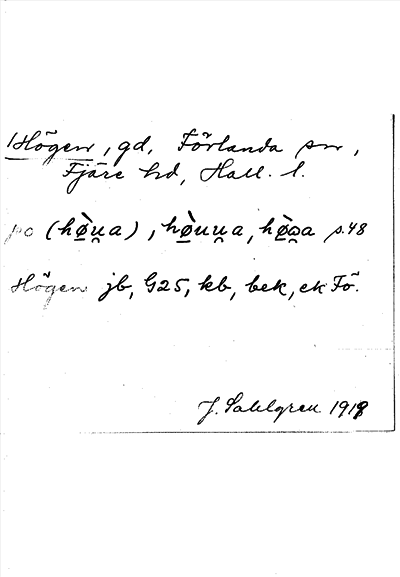 Högen, gd, Förlanda sn,
Fjäre hd, Hall. l.
po (hø̀u̯a), hø̀uu̯a, hø̀a s.48
Högen jb, G25, kb, bek, ek Fö.
J. Sahlgren 1918